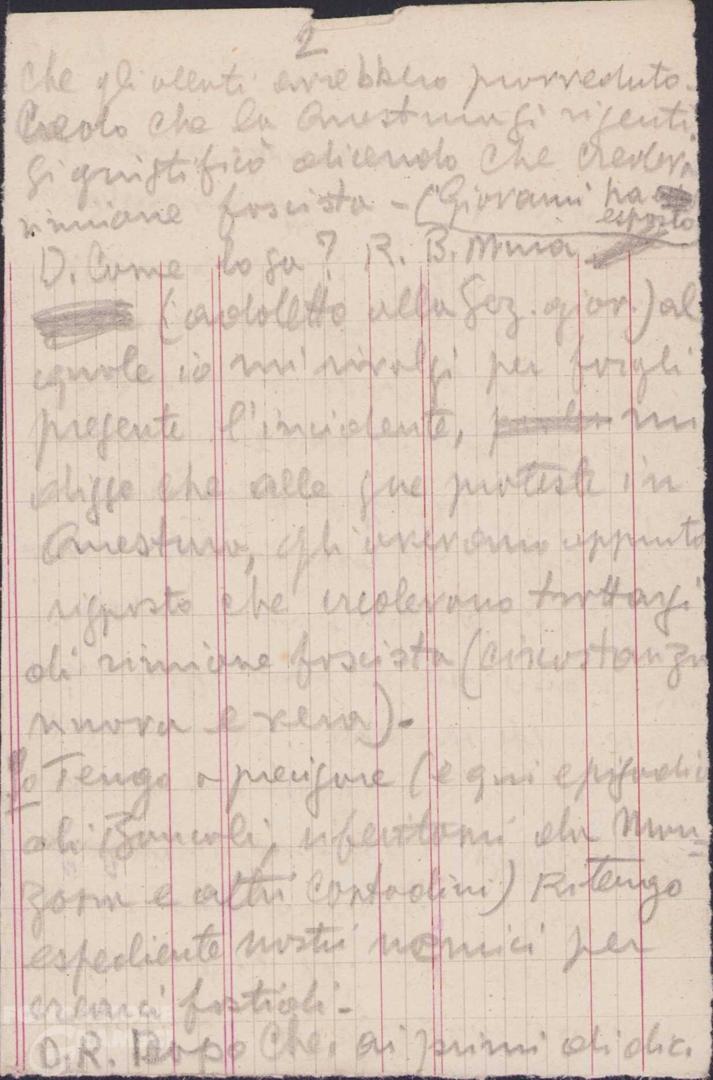 2
che gli agenti avrebbero provveduto.
Credo che la Questura si risentì.
Si giustificò dicendo che credeva
riunione fascista - (Giovanni ha
esposto
D. Come lo sa? R. B.
(addetto alla Sez. gior.) al
quale io mi rivolsi per fargli
presente l'incidente, mi
disse che alle sue proteste in
Questura, gli avevano appunto
risposto che credevano trattarsi
di riunione fascista (circostanza
nuova e vera).-
Tengo a precisare (e qui episodio
di riferitomi da Man=
zoni e altri contadini) Ritengo
espediente nostri nemici per
crearci fastidi -
D.R. Dopo che, ai primi di dic.